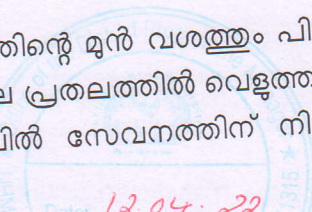 ത്തിന്റെ മുൻ വശത്തും പി
ല പ്രതലത്തിൽ വെളുത്ത
ിൽ സേവനത്തിന് നി
12.04.22